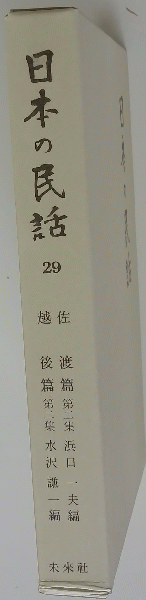 日本の民話
29
佐渡篇 第二集 浜口一夫編
越後篇 第二集 水沢謙一編
未来社
日本の民話